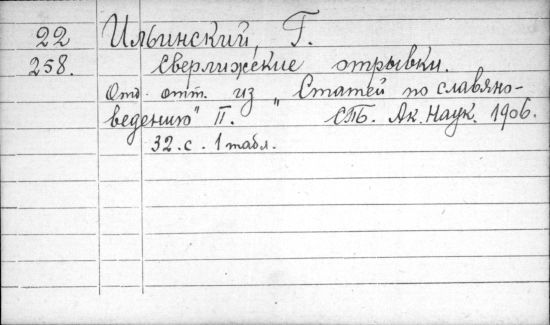 22 Ильинский, Г.
258. Сверлижские отрывки.
Отд. отт. из „Статей по славяно-
ведению" II. СПб. Ак. Наук. 1906.
32. с. 1 табл.